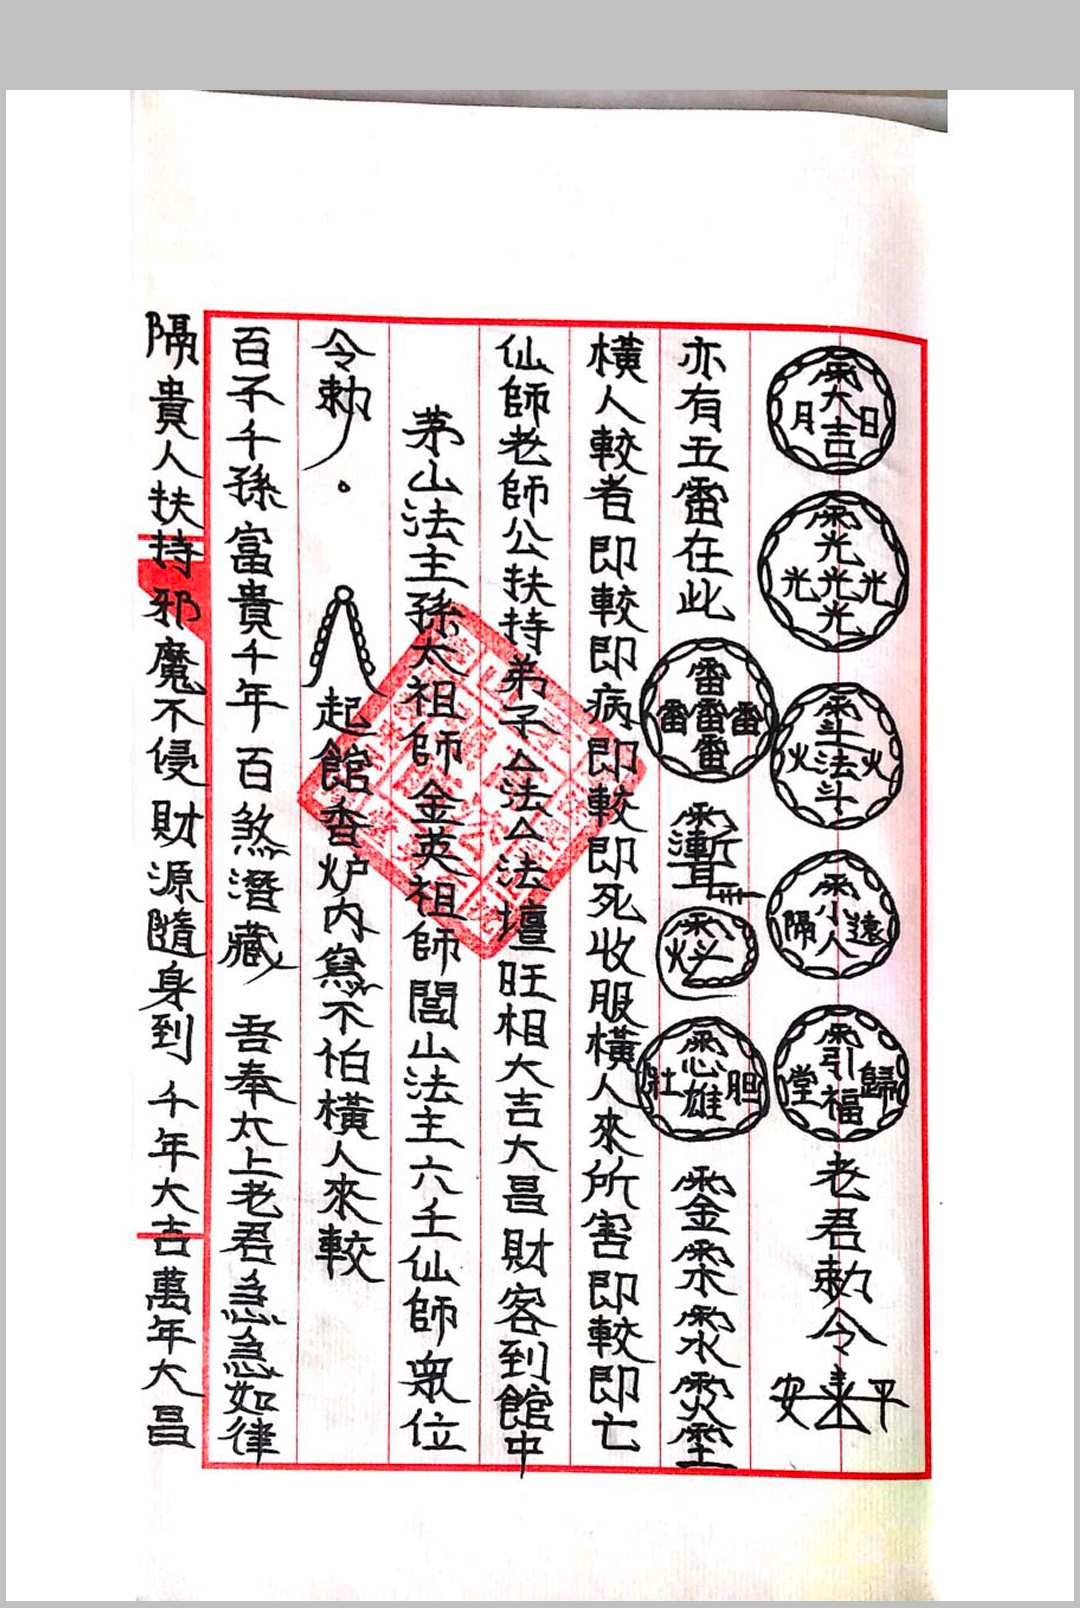 日大吉月
光光光光光
火斗法斗火
遠小人隔
歸引福堂
老君敕令
平安
亦有五雷在此
雷雷雷雷雷
胆雄壯
橫人較者即較即病即較即死收服橫人來所害即較即亡
仙師老師公扶持弟子厶法厶法壇旺相大吉大昌財客到館中
茅山法主孫太祖師金英祖師閭山法主六壬仙師眾位
令敕。起館香炉内寫不怕橫人來較
百子千孫富貴千年百煞潛藏 吾奉太上老君急急如律
隔貴人扶持邪魔不侵財源隨身到千年大吉萬年大昌